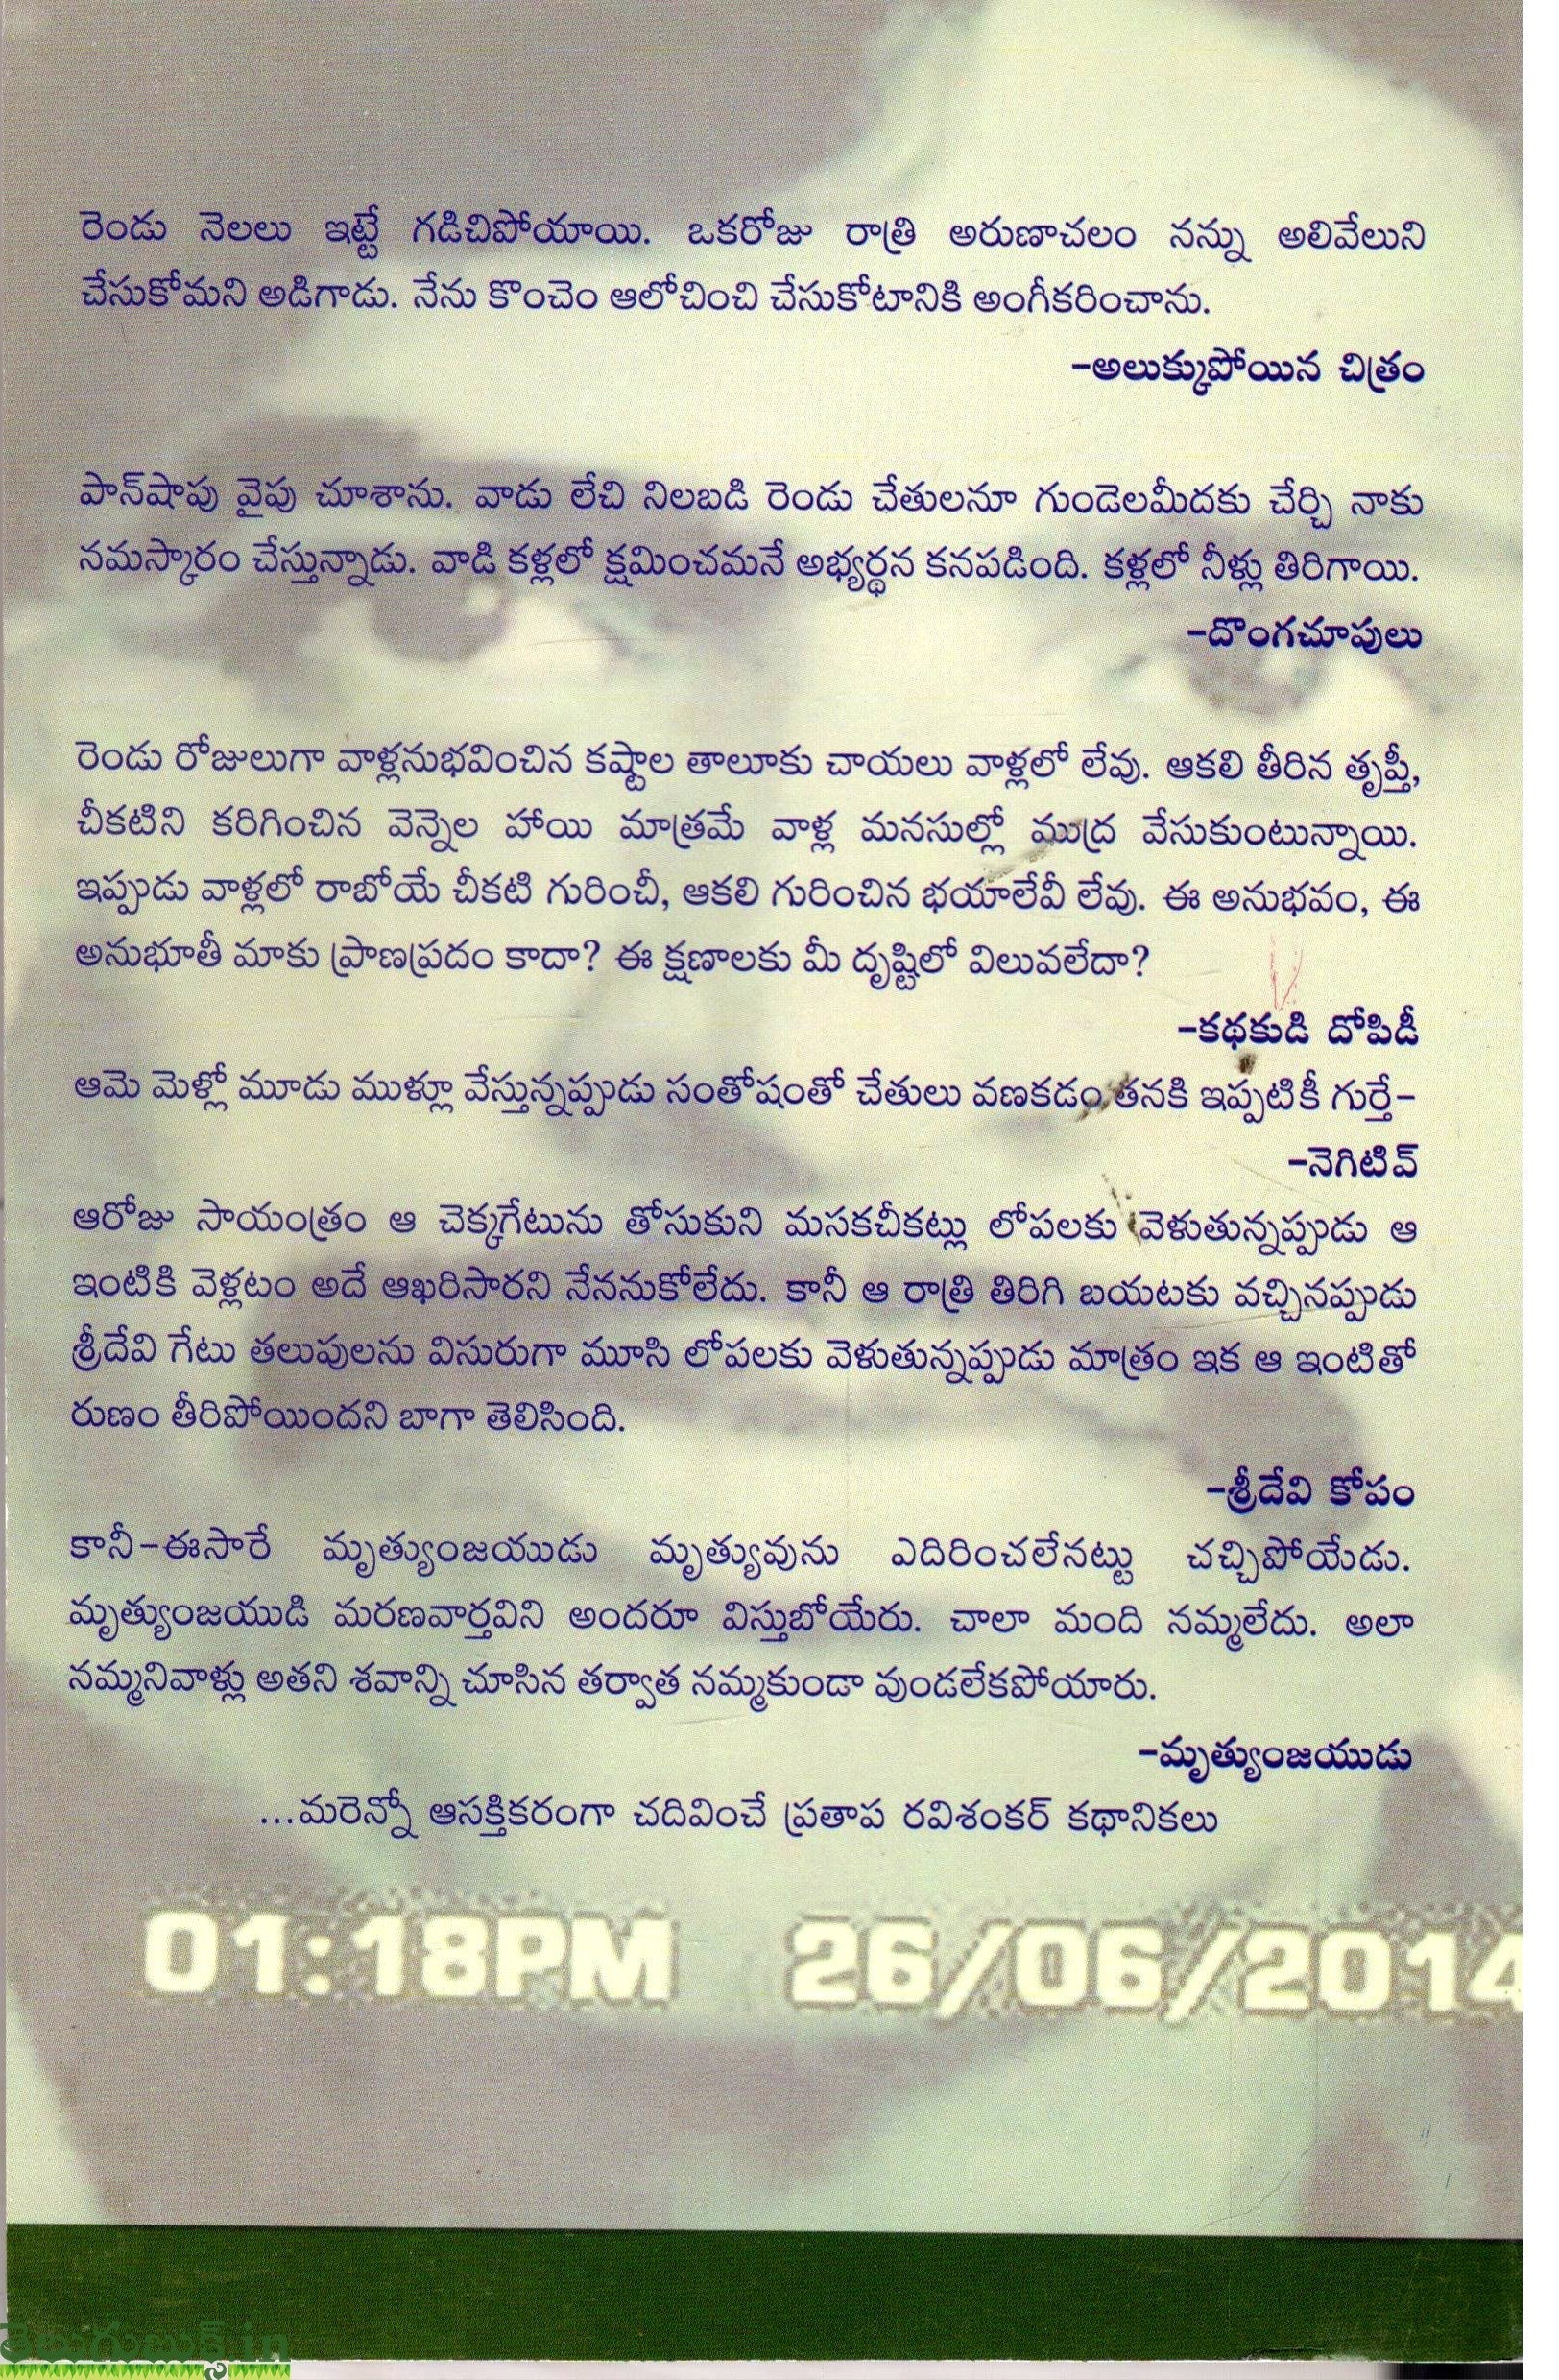 రెండు నెలలు ఇట్టే గడిచిపోయాయి. ఒకరోజు రాత్రి అరుణాచలం నన్ను అలివేలుని
చేసుకోమని అడిగాడు. నేను కొంచెం ఆలోచించి చేసుకోటానికి అంగీకరించాను.
-అలుక్కుపోయిన చిత్రం
పాన్‌షాపు వైపు చూశాను. వాడు లేచి నిలబడి రెండు చేతులనూ గుండెలమీదకు చేర్చి నాకు
నమస్కారం చేస్తున్నాడు. వాడి కళ్లలో క్షమించమనే అభ్యర్థన కనపడింది. కళ్లలో నీళ్లు తిరిగాయి.
-దొంగచూపులు
రెండు రోజులుగా వాళ్లనుభవించిన కష్టాల తాలూకు చాయలు వాళ్లలో లేవు. ఆకలి తీరిన తృప్తీ,
చీకటిని కరిగించిన వెన్నెల హాయి మాత్రమే వాళ్ల మనసుల్లో ముద్ర వేసుకుంటున్నాయి.
ఇప్పుడు వాళ్లలో రాబోయే చీకటి గురించీ, ఆకలి గురించిన భయాలేవీ లేవు. ఈ అనుభవం, ఈ
అనుభూతీ మాకు ప్రాణప్రదం కాదా? ఈ క్షణాలకు మీ దృష్టిలో విలువలేదా?
-కథకుడి దోపిడీ
ఆమె మెళ్లో మూడు ముళ్లూ వేస్తున్నప్పుడు సంతోషంతో చేతులు వణకడం తనకి ఇప్పటికీ గుర్తే-
-నెగిటివ్
ఆరోజు సాయంత్రం ఆ చెక్కగేటును తోసుకుని మసకచీకట్లు లోపలకు వెళుతున్నప్పుడు ఆ
ఇంటికి వెళ్లటం అదే ఆఖరిసారని నేననుకోలేదు. కానీ ఆ రాత్రి తిరిగి బయటకు వచ్చినప్పుడు
శ్రీదేవి గేటు తలుపులను విసురుగా మూసి లోపలకు వెళుతున్నప్పుడు మాత్రం ఇక ఆ ఇంటితో
రుణం తీరిపోయిందని బాగా తెలిసింది.
-శ్రీదేవి కోపం
కానీ-ఈసారే మృత్యుంజయుడు మృత్యువును ఎదిరించలేనట్టు చచ్చిపోయేడు.
మృత్యుంజయుడి మరణవార్తవిని అందరూ విస్తుబోయేరు. చాలా మంది నమ్మలేదు. అలా
నమ్మనివాళ్లు అతని శవాన్ని చూసిన తర్వాత నమ్మకుండా వుండలేకపోయారు.
-మృత్యుంజయుడు
...మరెన్నో ఆసక్తికరంగా చదివించే ప్రతాప రవిశంకర్ కథానికలు
01:18PM 26/06/2014
తెలుగుబుక్స్.in